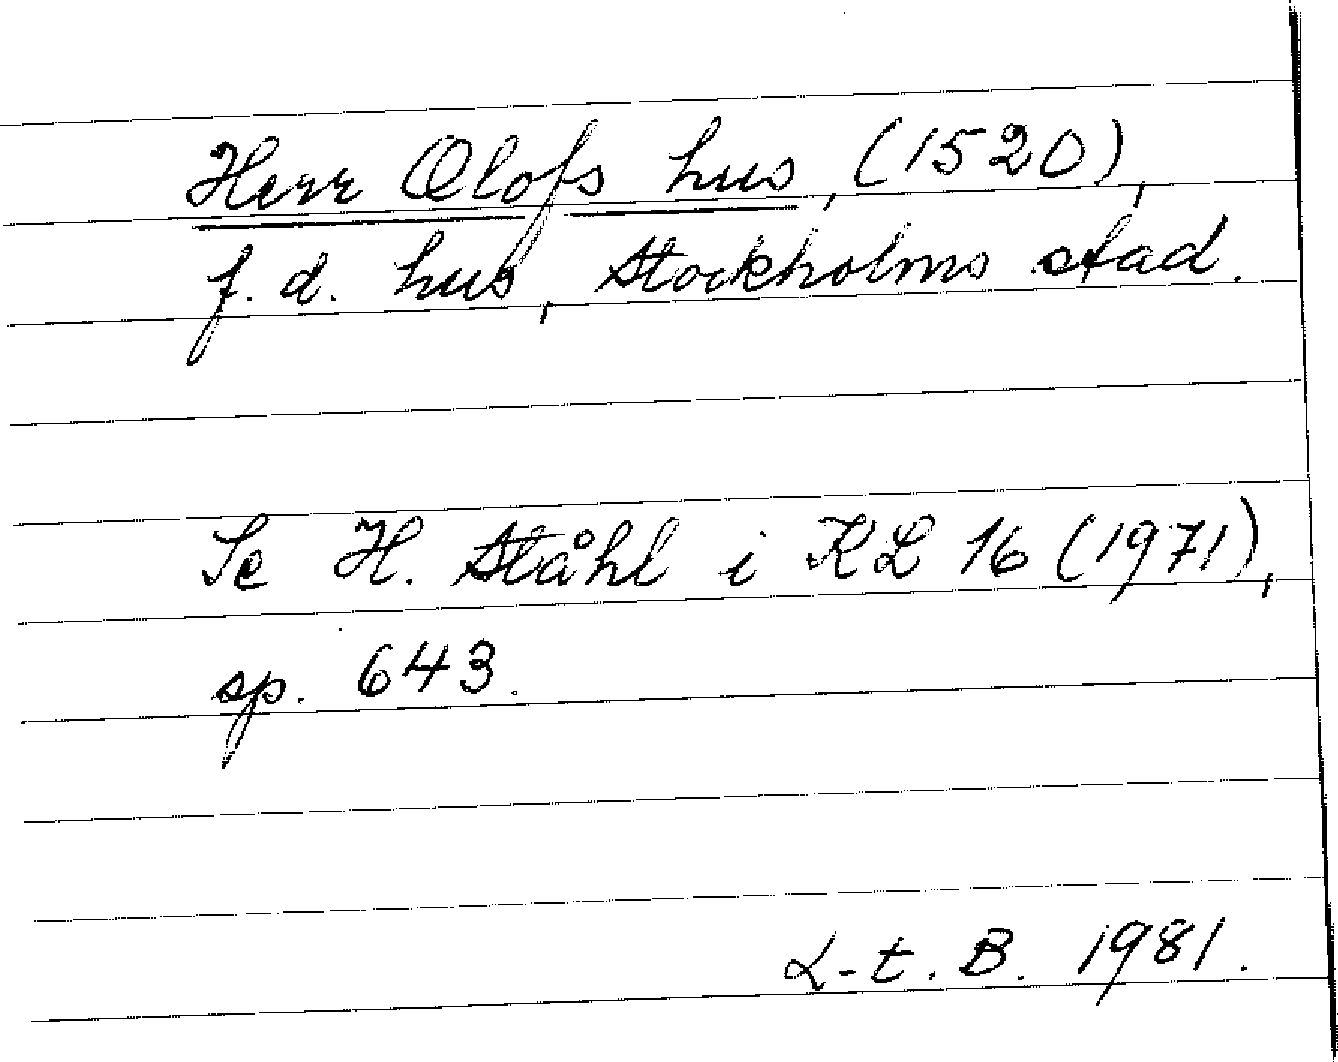 Herr Olofs hus, (1520),
f.d. hus, Stockholms stad.
Se H. Ståhl i KL 16 (1971),
sp. 643.
L-t. B. 1981.